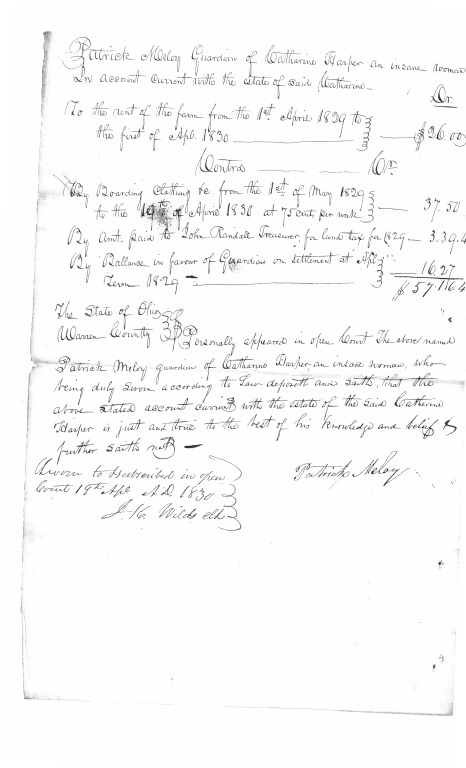 Patrick Meloy Guardian of Catharine Harper an insane woman
In account current with the estate of said Catharine —
Dr.
To the rent of the farm from the 1st April 1829 to
the first of Apl. 1830 — $26.00
Contra Cr.
By Boarding Clothing &c. from the 1st of May 1829
to the 19th of April 1830 at 75 cents per week — 37.50
By Amt. paid to John Randall Treasurer, for land tax for 1829 — 3.39.4
By Ballance in favour of Guardian on settlement at Apl
Term 1829 — 16.27
$57.16.4
The State of Ohio
Warren County Personally appeared in open Court The above named
Patrick Meloy guardian of Catharine Harper an insane woman, who
being duly sworn according to Law deposeth and saith, that the
above stated account current with the estate of the said Catherine
Harper is just and true to the best of his knowledge and belief &
further saith not —
Sworn to & subscribed in open
Court 19th Apl A.D. 1830
Patrick Meloy
J. K. Wilds clk